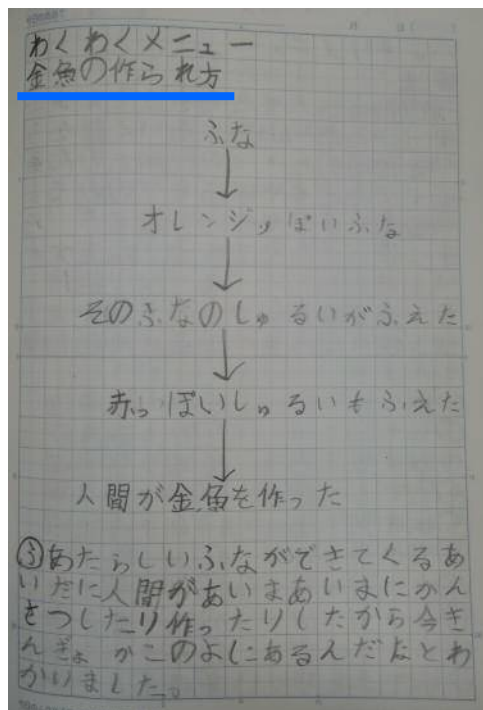 わくわくメニュー
金魚の作られ方
ふな
オレンジっぽいふな
そのふなのしゅるいがふえた
赤っぽいしゅるいもふえた
人間が金魚を作った
ふあたらしいふながでてきてくるあ
いだに人間があいまあいまにかん
さつしたり作ったりしたから今き
んぎょがこのよにあるんだなとわ
かりました。